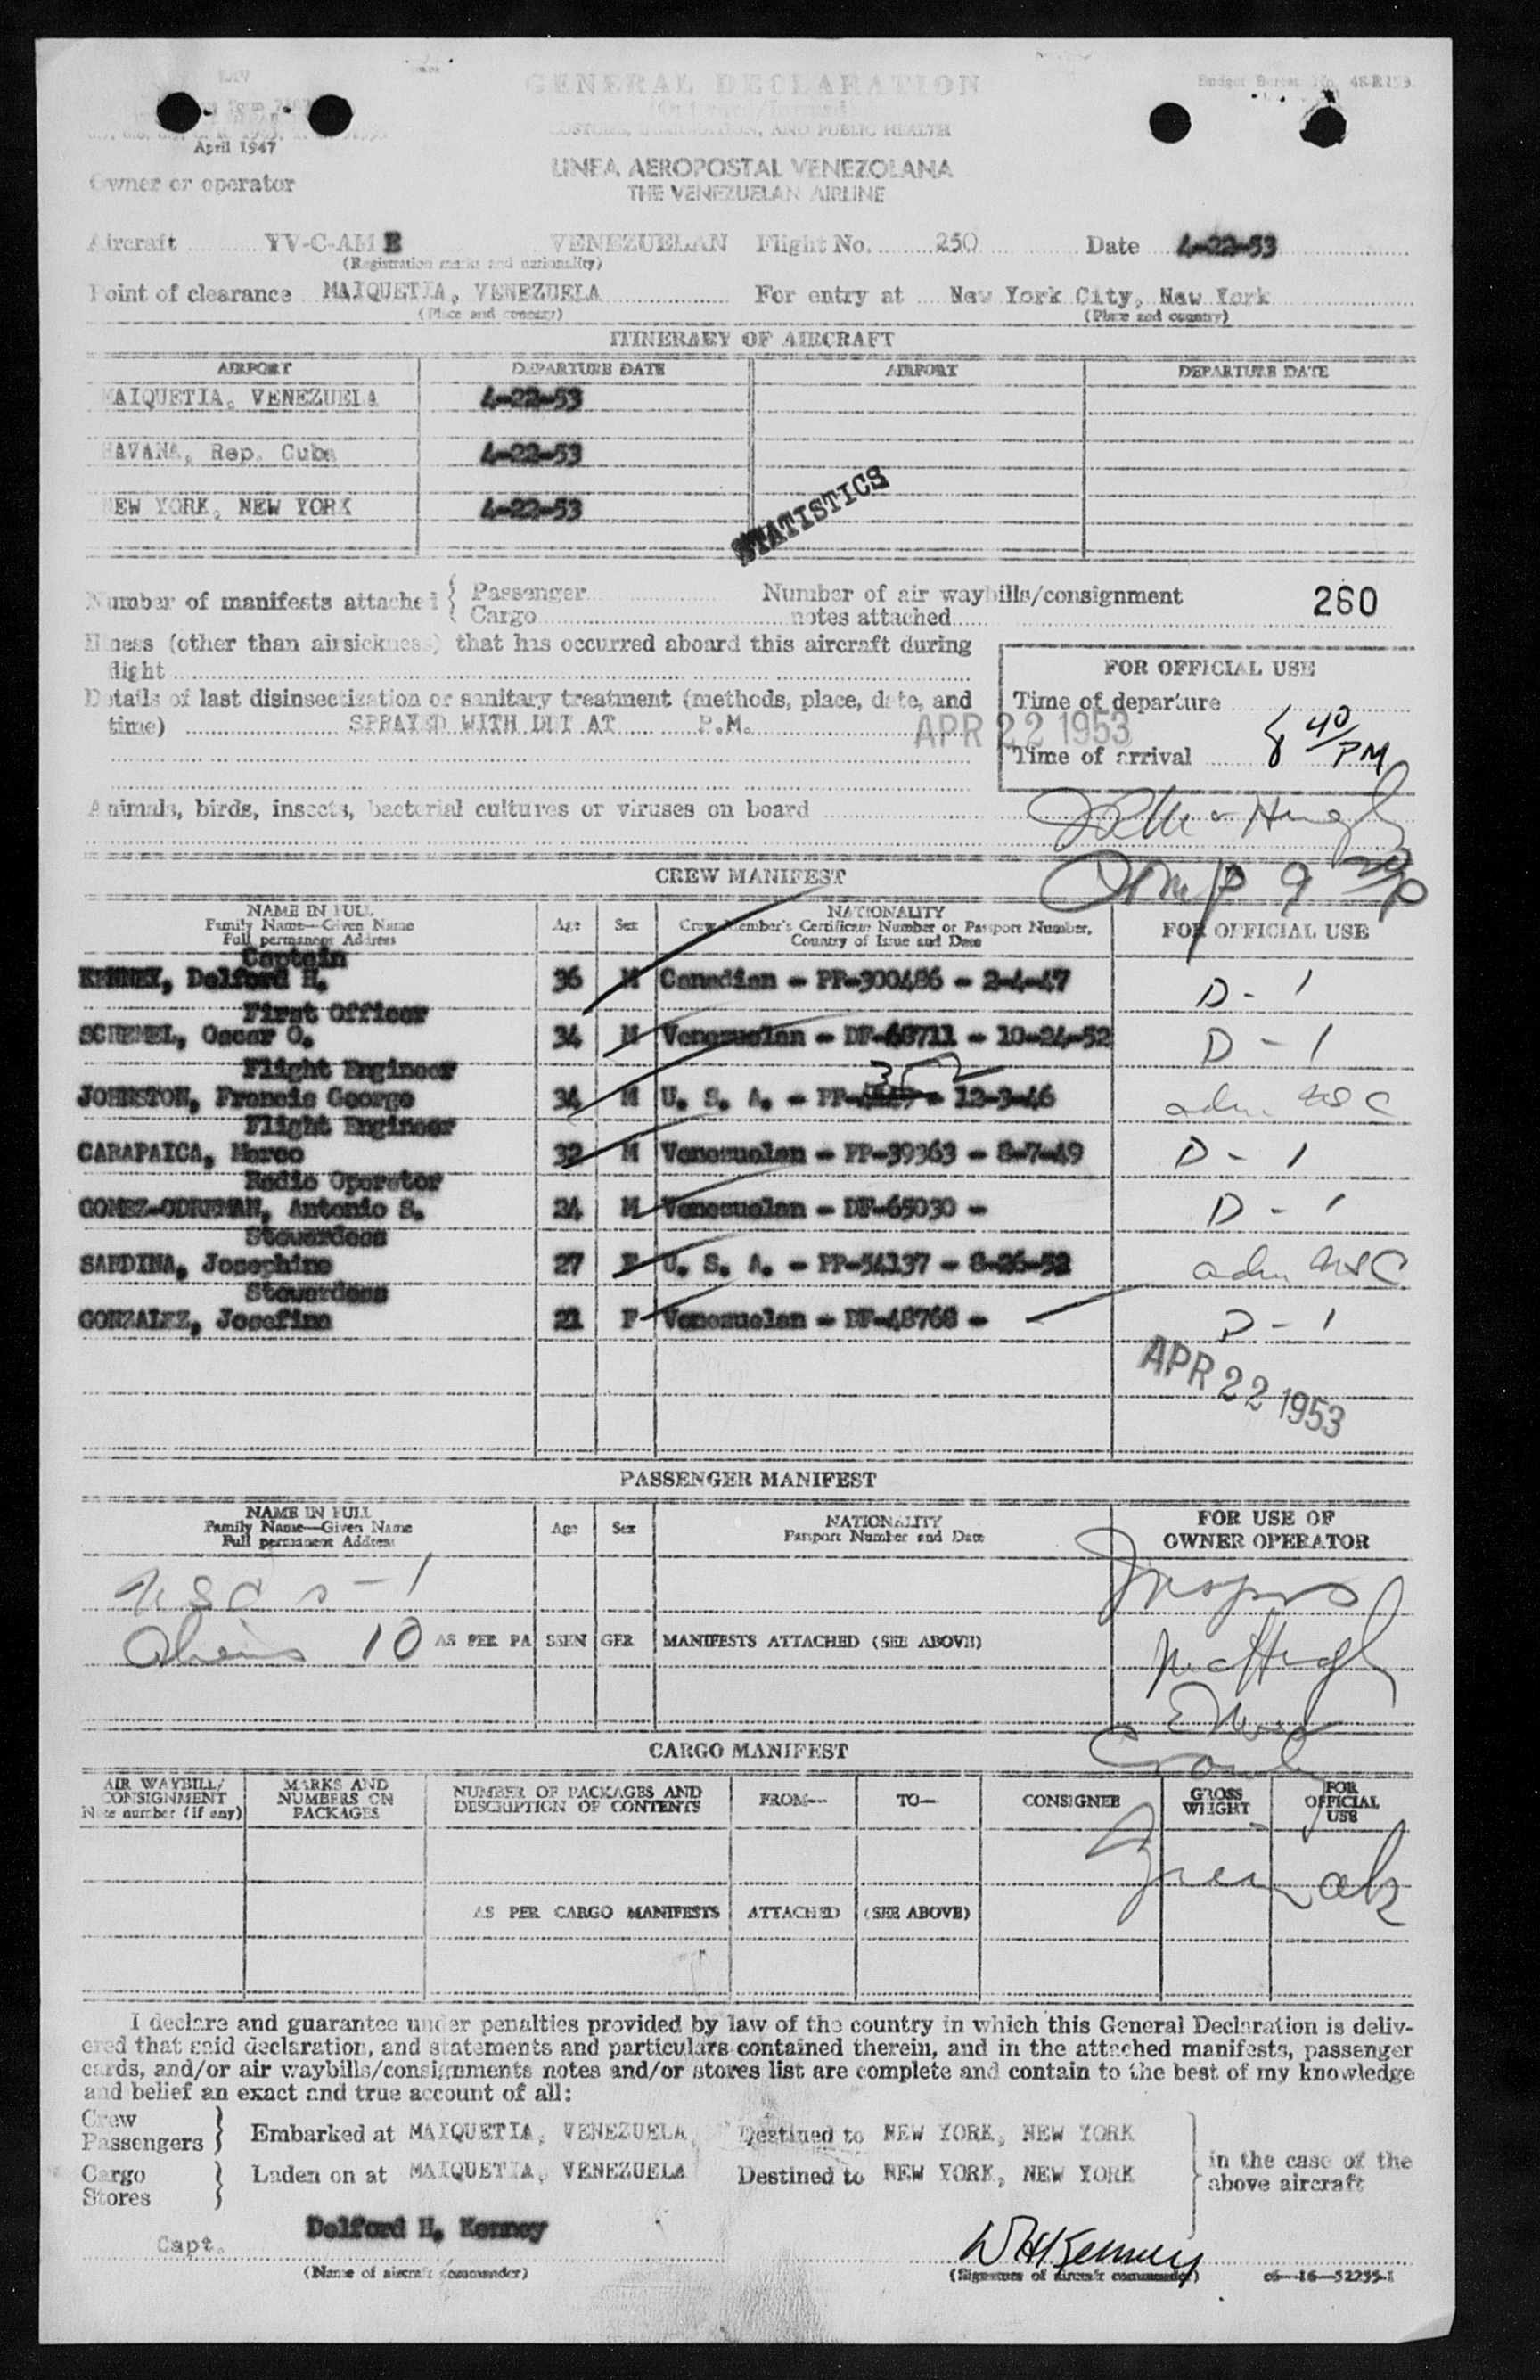 GENERAL DECLARATION
Budget Bureau No. 48-R199.
CUSTOMS, IMMIGRATION, AND PUBLIC HEALTH
April 1947
LINEA AEROPOSTAL VENEZOLANA
Owner or operator
THE VENEZUELAN AIRLINE
Aircraft YV-C-AME VENEZUELAN Flight No. 250 Date 4-22-53
(Registration marks and nationality)
Point of clearance MAIQUETIA, VENEZUELA For entry at New York City, New York
(Place and country) (Place and country)
ITINERARY OF AIRCRAFT
AIRPORT DEPARTURE DATE AIRPORT DEPARTURE DATE
MAIQUETIA, VENEZUELA 4-22-53
HAVANA, Rep. Cuba 4-22-53
NEW YORK, NEW YORK 4-22-53
STATISTICS
Number of manifests attached { Passenger Number of air waybills/consignment 260
Cargo notes attached
Illness (other than airsickness) that has occurred aboard this aircraft during
flight
FOR OFFICIAL USE
Details of last disinsectization or sanitary treatment (methods, place, date, and
Time of departure
time) SPRAYED WITH DDT AT P.M. APR 22 1953
Time of arrival 8 40/PM
Animals, birds, insects, bacterial cultures or viruses on board
CREW MANIFEST
NAME IN FULL Age Sex NATIONALITY FOR OFFICIAL USE
Family Name—Given Name Crew Member's Certificate Number or Passport Number,
Full permanent Address Country of Issue and Date
Captain
KENNEY, Delford H. 36 M Canadian - PP-300486 - 2-4-47 D-1
First Officer
SCHEMEL, Oscar O. 34 M Venezuelan - DF-68711 - 10-24-52 D-1
Flight Engineer
JOHNSTON, Francis George 34 M U. S. A. - PP- 352 - 12-3-46 adm USC
Flight Engineer
CARAPAICA, Marco 32 M Venezuelan - PP-39363 - 8-7-49 D-1
Radio Operator
GOMEZ- Antonio S. 24 M Venezuelan - DF-65030 - D-1
Stewardess
SARDINA, Josephine 27 F U. S. A. - PP-54137 - 8-26-52 adm USC
Stewardess
GONZALEZ, Josefina 21 F Venezuelan - DF-48768 - D-1
APR 22 1953
PASSENGER MANIFEST
NAME IN FULL Age Sex NATIONALITY FOR USE OF
Family Name—Given Name Passport Number and Date OWNER OPERATOR
Full permanent Address
USC s - 1
Aliens 10 AS PER PASSENGER MANIFESTS ATTACHED (SEE ABOVE)
McHugh
CARGO MANIFEST
AIR WAYBILL/ MARKS AND NUMBER OF PACKAGES AND FROM— TO— CONSIGNEE GROSS FOR
CONSIGNMENT NUMBERS ON DESCRIPTION OF CONTENTS WEIGHT OFFICIAL
Note number (if any) PACKAGES USE
AS PER CARGO MANIFESTS ATTACHED (SEE ABOVE)
I declare and guarantee under penalties provided by law of the country in which this General Declaration is deliv-
ered that said declaration, and statements and particulars contained therein, and in the attached manifests, passenger
cards, and/or air waybills/consignments notes and/or stores list are complete and contain to the best of my knowledge
and belief an exact and true account of all:
Crew
Passengers } Embarked at MAIQUETIA, VENEZUELA Destined to NEW YORK, NEW YORK
Cargo } Laden on at MAIQUETIA, VENEZUELA Destined to NEW YORK, NEW YORK
Stores
in the case of the
above aircraft
Capt. Delford H. Kenney DHKenney
(Name of aircraft commander) (Signature of aircraft commander) 06—16—52235-1